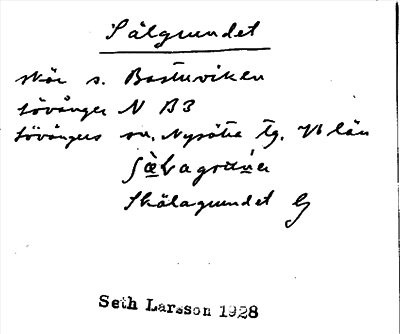 Sälgrundet
skär s. Bastuviken
Lövånger N B3
Lövångers sn. Nysätra tg. Vb län
Skälagrundet
Seth Larsson 1928